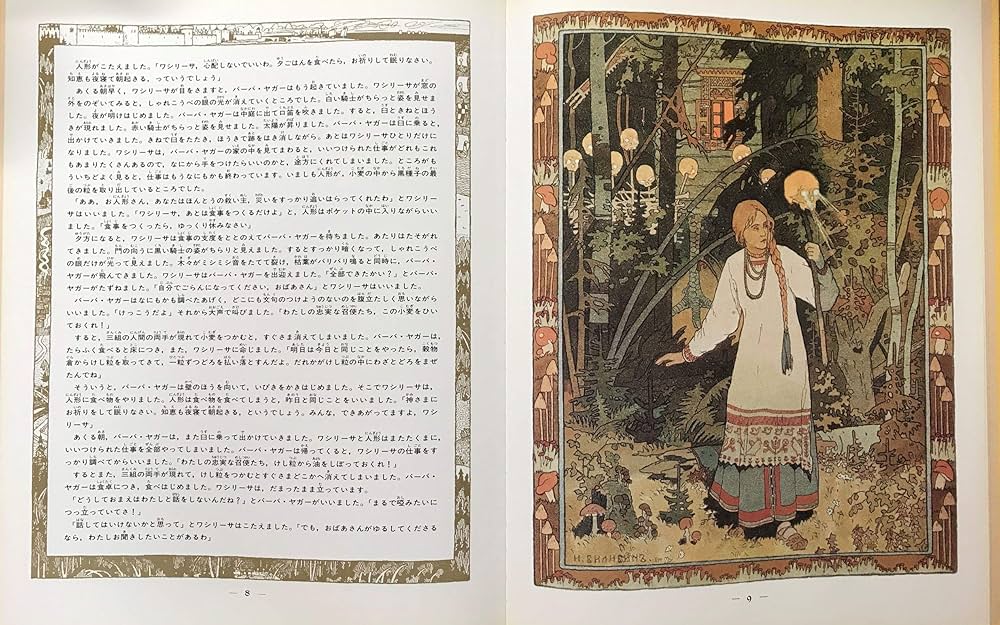 人形がこたえました。「ワシリーサ，心配しないでいいわ。夕ごはんを食べたら，お祈りして眠りなさい。
知恵も夜寝て朝起きる，っていうでしょう」
あくる朝早く，ワシリーサが目をさますと，バーバ・ヤガーはもう起きていました。ワシリーサが窓の
外をのぞいてみると，しゃれこうべの眼の光が消えていくところでした。白い騎士がちらっと姿を見せま
した。夜が明けはじめました。バーバ・ヤガーは中庭に出て口笛を吹きました。すると，臼ときねとほう
きが現れました。赤い騎士がちらっと姿を見せました。太陽が昇りました。バーバ・ヤガーは臼に乗ると，
出かけていきました。きねで臼をたたき，ほうきで跡をはき消しながら。あとはワシリーサひとりだけに
なりました。ワシリーサは，バーバ・ヤガーの家の中を見てまわると，いいつけられた仕事がどれもこれ
もあまりたくさんあるので，なにから手をつけたらいいのかと，途方にくれてしまいました。ところがも
ういちどよく見ると，仕事はもうなにもかも終わっています。いましも人形が，小麦の中から黒種子の最
後の粒を取り出しているところでした。
「ああ，お人形さん，あなたはほんとうの救い主，災いをすっかり追いはらってくれたわ」とワシリー
サはいいました。「ワシリーサ，あとは食事をつくるだけよ」と，人形はポケットの中に入りながらいい
ました。「食事をつくったら，ゆっくり休みなさい」
夕方になると，ワシリーサは食事の支度をととのえてバーバ・ヤガーを待ちました。あたりはたそがれ
てきました。門の向うに黒い騎士の姿がちらりと見えました。するとすっかり暗くなって，しゃれこうべ
の眼だけが光って見えました。木々がミシミシ音をたてて裂け，枯葉がバリバリ鳴ると同時に，バーバ・
ヤガーが飛んできました。ワシリーサはバーバ・ヤガーを出迎えました。「全部できたかい？」とバーバ・
ヤガーがたずねました。「自分でごらんになってください，おばあさん」とワシリーサはいいました。
バーバ・ヤガーはなにもかも調べたあげく，どこにも文句のつけようのないのを腹立たしく思いながら
いいました。「けっこうだよ」それから大声で叫びました。「わたしの忠実な召使たち，この小麦をひい
ておくれ！」
すると，三組の人間の両手が現れて小麦をつかむと，すぐさま消えてしまいました。バーバ・ヤガーは，
たらふく食べると床につき，また，ワシリーサに命じました。「明日は今日と同じことをやったら，穀物
倉からけし粒を取ってきて，一粒ずつどろを払い落とすんだよ。だれかがけし粒の中にわざとどろをまぜ
たんでね」
そういうと，バーバ・ヤガーは壁のほうを向いて，いびきをかきはじめました。そこでワシリーサは，
人形に食べ物をやりました。人形は食べ物を食べてしまうと，昨日と同じことをいいました。「神さまに
お祈りをして眠りなさい。知恵も夜寝て朝起きる，というでしょう。みんな，できあがってますよ，ワシ
リーサ」
あくる朝，バーバ・ヤガーは，また臼に乗って出かけていきました。ワシリーサと人形はまたたくまに，
いいつけられた仕事を全部やってしまいました。バーバ・ヤガーは帰ってくると，ワシリーサの仕事をす
っかり調べてからいいました。「わたしの忠実な召使たち，けし粒から油をしぼっておくれ！」
するとまた，三組の両手が現れて，けし粒をつかむとすぐさまどこかへ消えてしまいました。バーバ・
ヤガーは食卓につき，食べはじめました。ワシリーサは，だまったまま立っています。
「どうしておまえはわたしと話をしないんだね？」とバーバ・ヤガーがいいました。「まるで啞みたいに
つっ立っていてさ！」
「話してはいけないかと思って」とワシリーサはこたえました。「でも，おばあさんがゆるしてくださる
なら，わたしお聞きしたいことがあるわ」
— 8 —
И. БИЛИБИНЪ
— 9 —